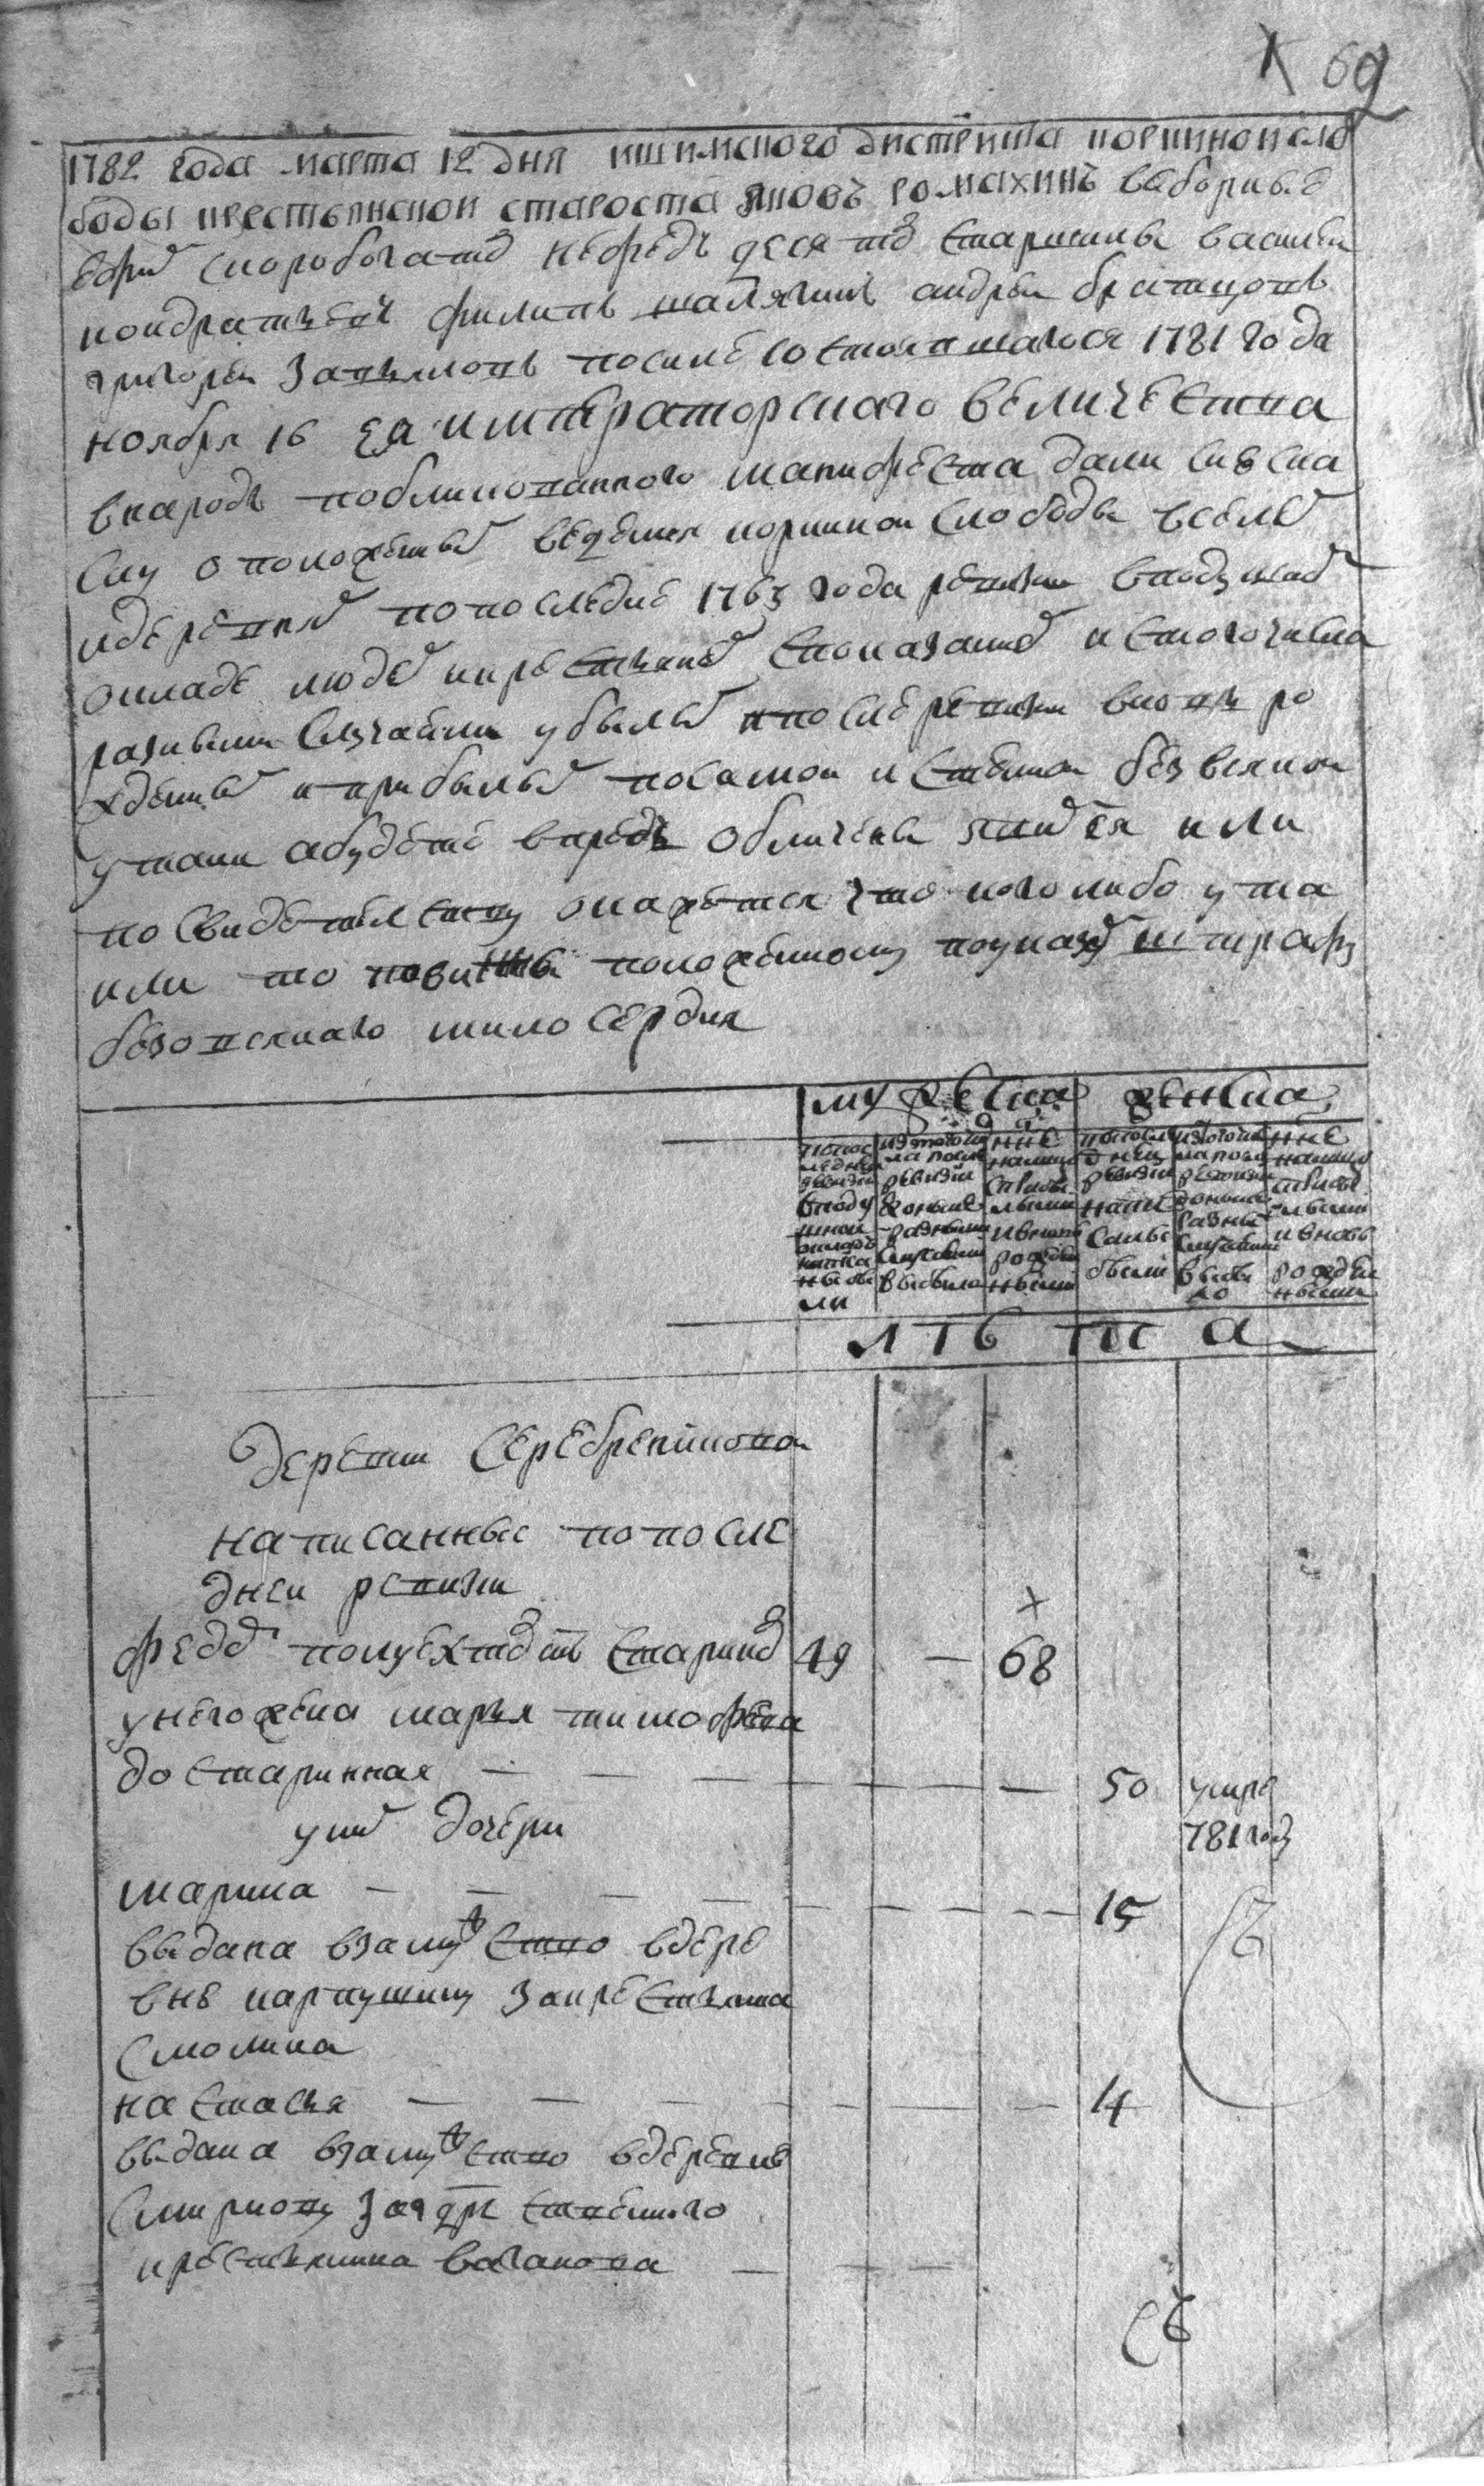 69
1782 года марта 12 дня ишимского дистрикта коркинои сло
боды крестьянскои староста яковъ ромахинъ выборные
ефим скоробогатов нефедъ десятов старшины василеи
кондратьевъ филипъ шалягинъ андреи братцовъ
григореи по силе состоявшагося 1781 года
ноября 16 ея императорскаго величества
в народъ публикованного манифеста дали сию ска
ску о положенных ведения коркинои слободы в селе
и деревнях по последне 1763 года ревизии в подушно
окладе люде и крестьяне с показание ис того числа
разными случаями убылых и после ревизии вновь ро
жденных и прибылых по самои истинне без всякои
утаики а буде впредь обличены или
по свидетельству окажется что кого либо ута
или то повинны положенному по указу штрафу
безо всякаго мило сердия
мужеска женска
по пос
ледней
ревизии
в поду
шном
окладе
написа
ны бы
ли
из того чи
ла после
ревизии
до ныне
разными
случаями
выбыло
ныне
на лицо
с прибы
лыми
и вновь
рожден
ными
по после
дней
ревизии
напи
саны
были
из того чис
ла после
ревизии
до ныне
разны
случаями
выбы
ло
ныне
на лицо
с прибы
лыми
и вновь
рожде
ными
лъ та
деревни Серебреникова
написанные по после
днеи ревизии
федо полуехтов старин 49 — 68
у него жена марья тимофеева
до старинная — — — — — — 50 умре
781 году
у них дочери
марина — — — — — — — — 15
выдана взамужство в дере
вню карпушину за крестьянина
Смолина
настасья — — — — — — — 4
выдана взамужство в деревне
Смирнову за ядрственного
крестьянина ваганова — — —